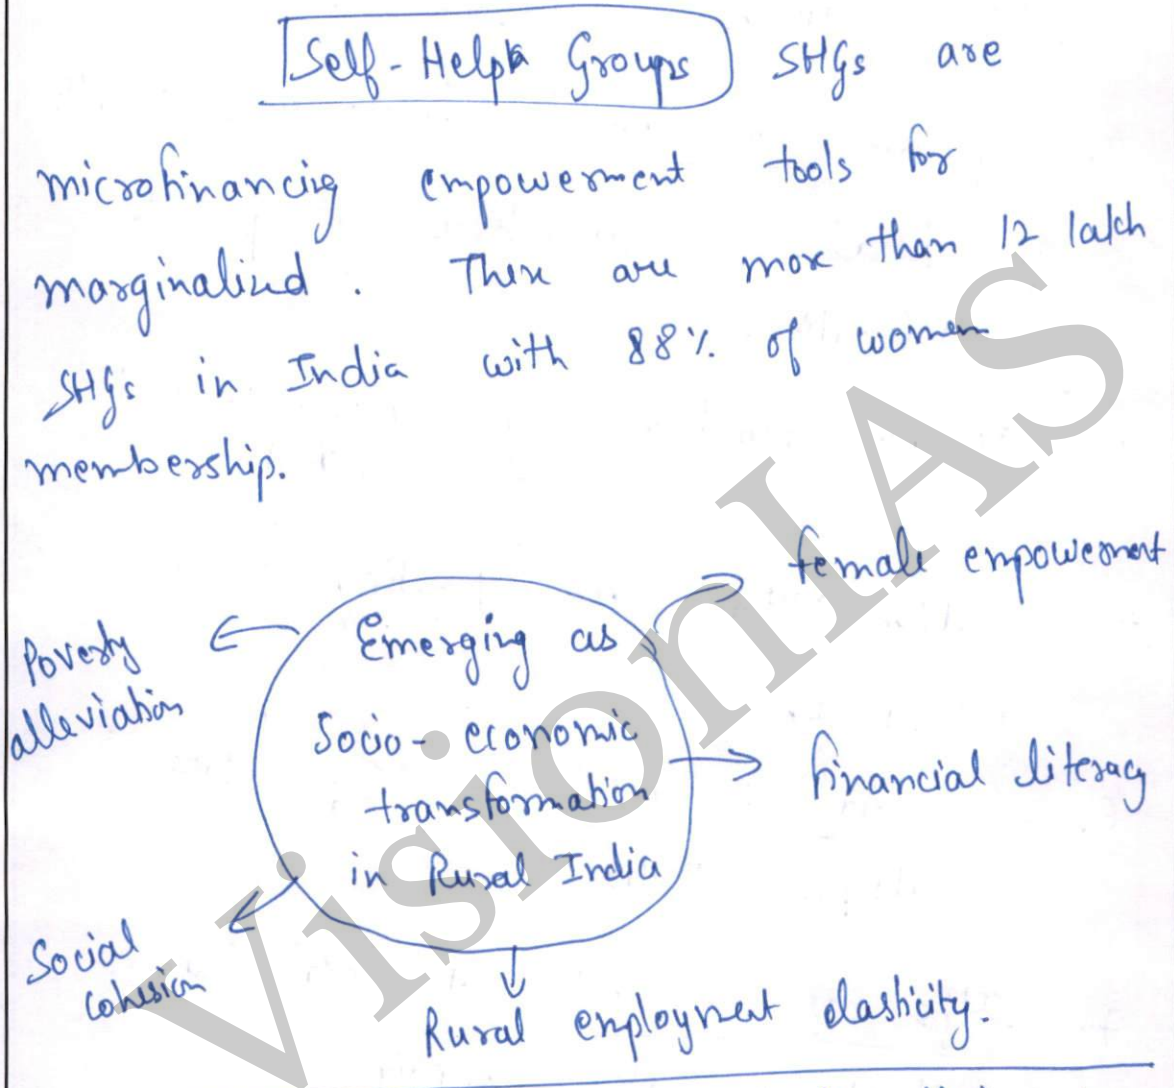 Self-Help Groups SHGs are
microfinancing empowerment tools for
marginalized. There are more than 12 lakh
SHGs in India with 88% of women
membership.
female empowerment
Poverty
alleviation
Emerging as
Socio-economic
transformation
in Rural India
financial literacy
Social
cohesion
Rural employment elasticity.
VisionIAS